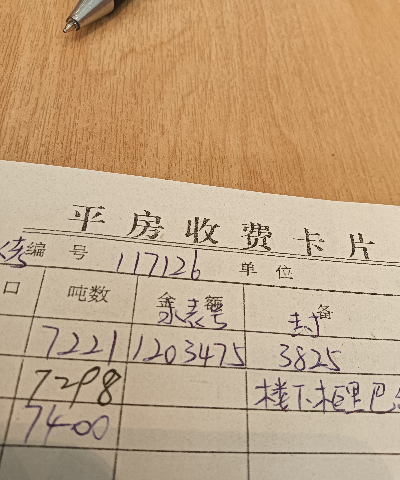 平房收费卡片
编号 117126 单位
口 吨数 金额 水表号 备 封
7221 1203475 3825
7298 楼下柜里巴
7400